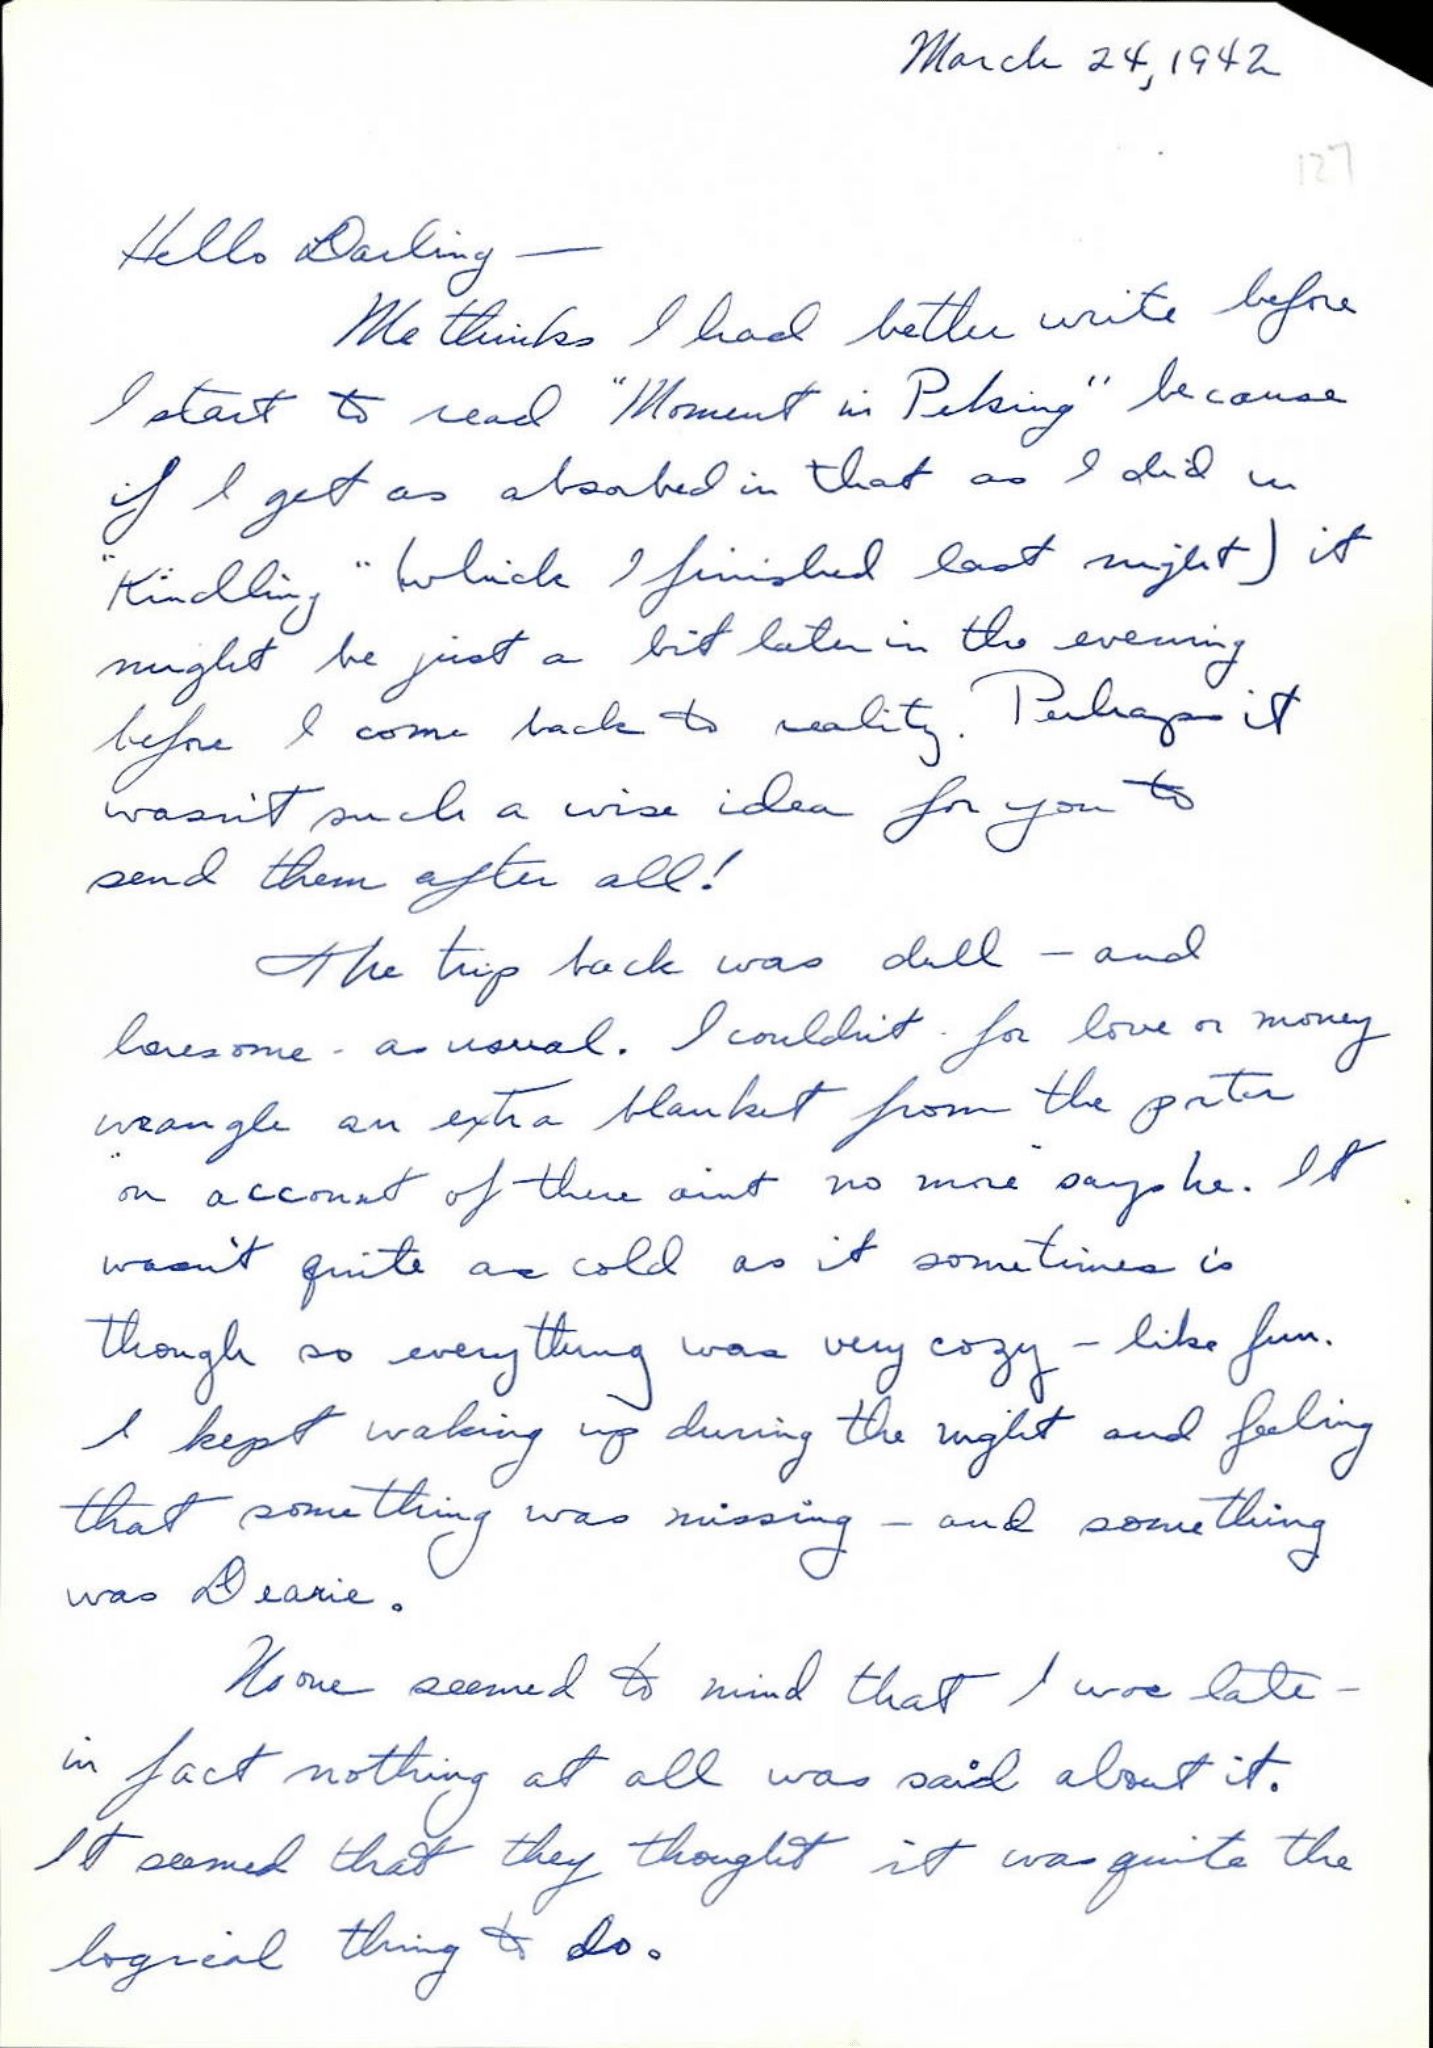 March 24, 1942
127
Hello Darling —
Me thinks I had better write before
I start to read "Moment in Peking" because
if I get as absorbed in that as I did in
"Kindling" (which I finished last night) it
might be just a bit later in the evening
before I come back to reality. Perhaps it
wasn't such a wise idea for you to
send them after all!
The trip back was dull – and
lonesome - as usual. I couldn't for love or money
wrangle an extra blanket from the porter
"on account of there aint no more" says he. It
wasn't quite as cold as it sometimes is
though so everything was very cozy – like fun.
I kept waking up during the night and feeling
that something was missing – and something
was Dearie.
No one seemed to mind that I was late –
in fact nothing at all was said about it.
It seemed that they thought it was quite the
logical thing to do.